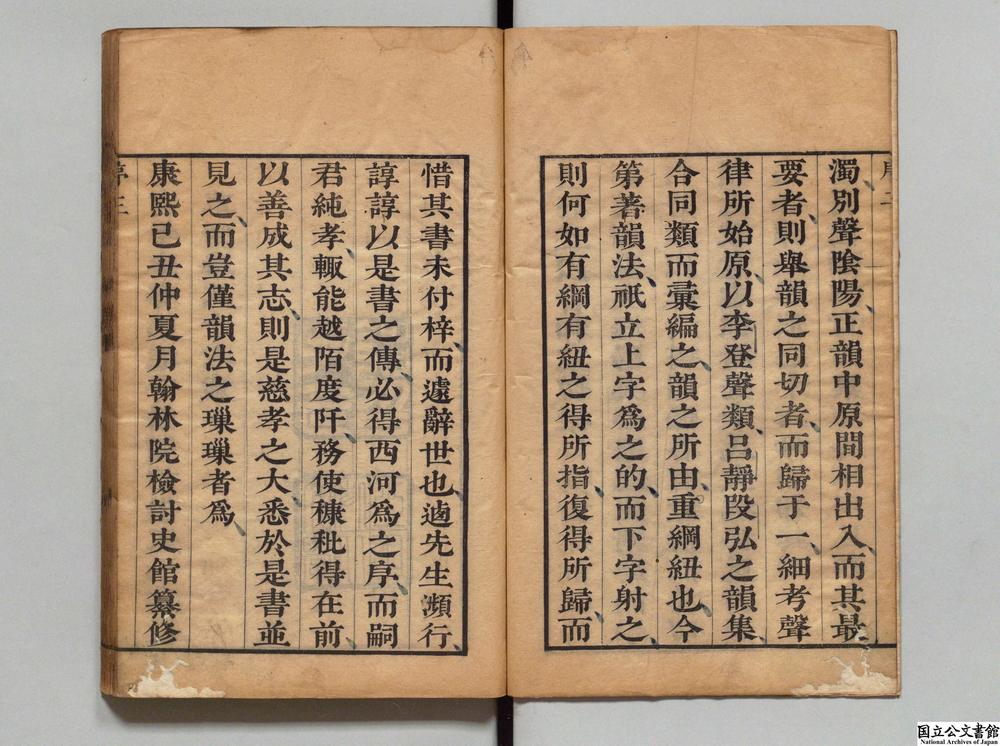 濁別聲陰陽正韻中原間相出入而其最
要者則舉韻之同切者而歸于一細考聲
律所始原以李登聲類呂靜段弘之韻集
合同類而彙編之韻之所由重綱紐也今
第著韻法祇立上字爲之的而下字射之
則何如有綱有紐之得所指復得所歸而
惜其書未付梓而遽辭世也逌先生瀕行
諄諄以是書之傳必得西河爲之序而嗣
君純孝輙能越陌度阡務使糠秕得在前
以善成其志則是慈孝之大悉於是書並
見之而豈僅韻法之璅璅者爲
康熙己丑仲夏月翰林院檢討史館纂修
序三
国立公文書館
National Archives of Japan